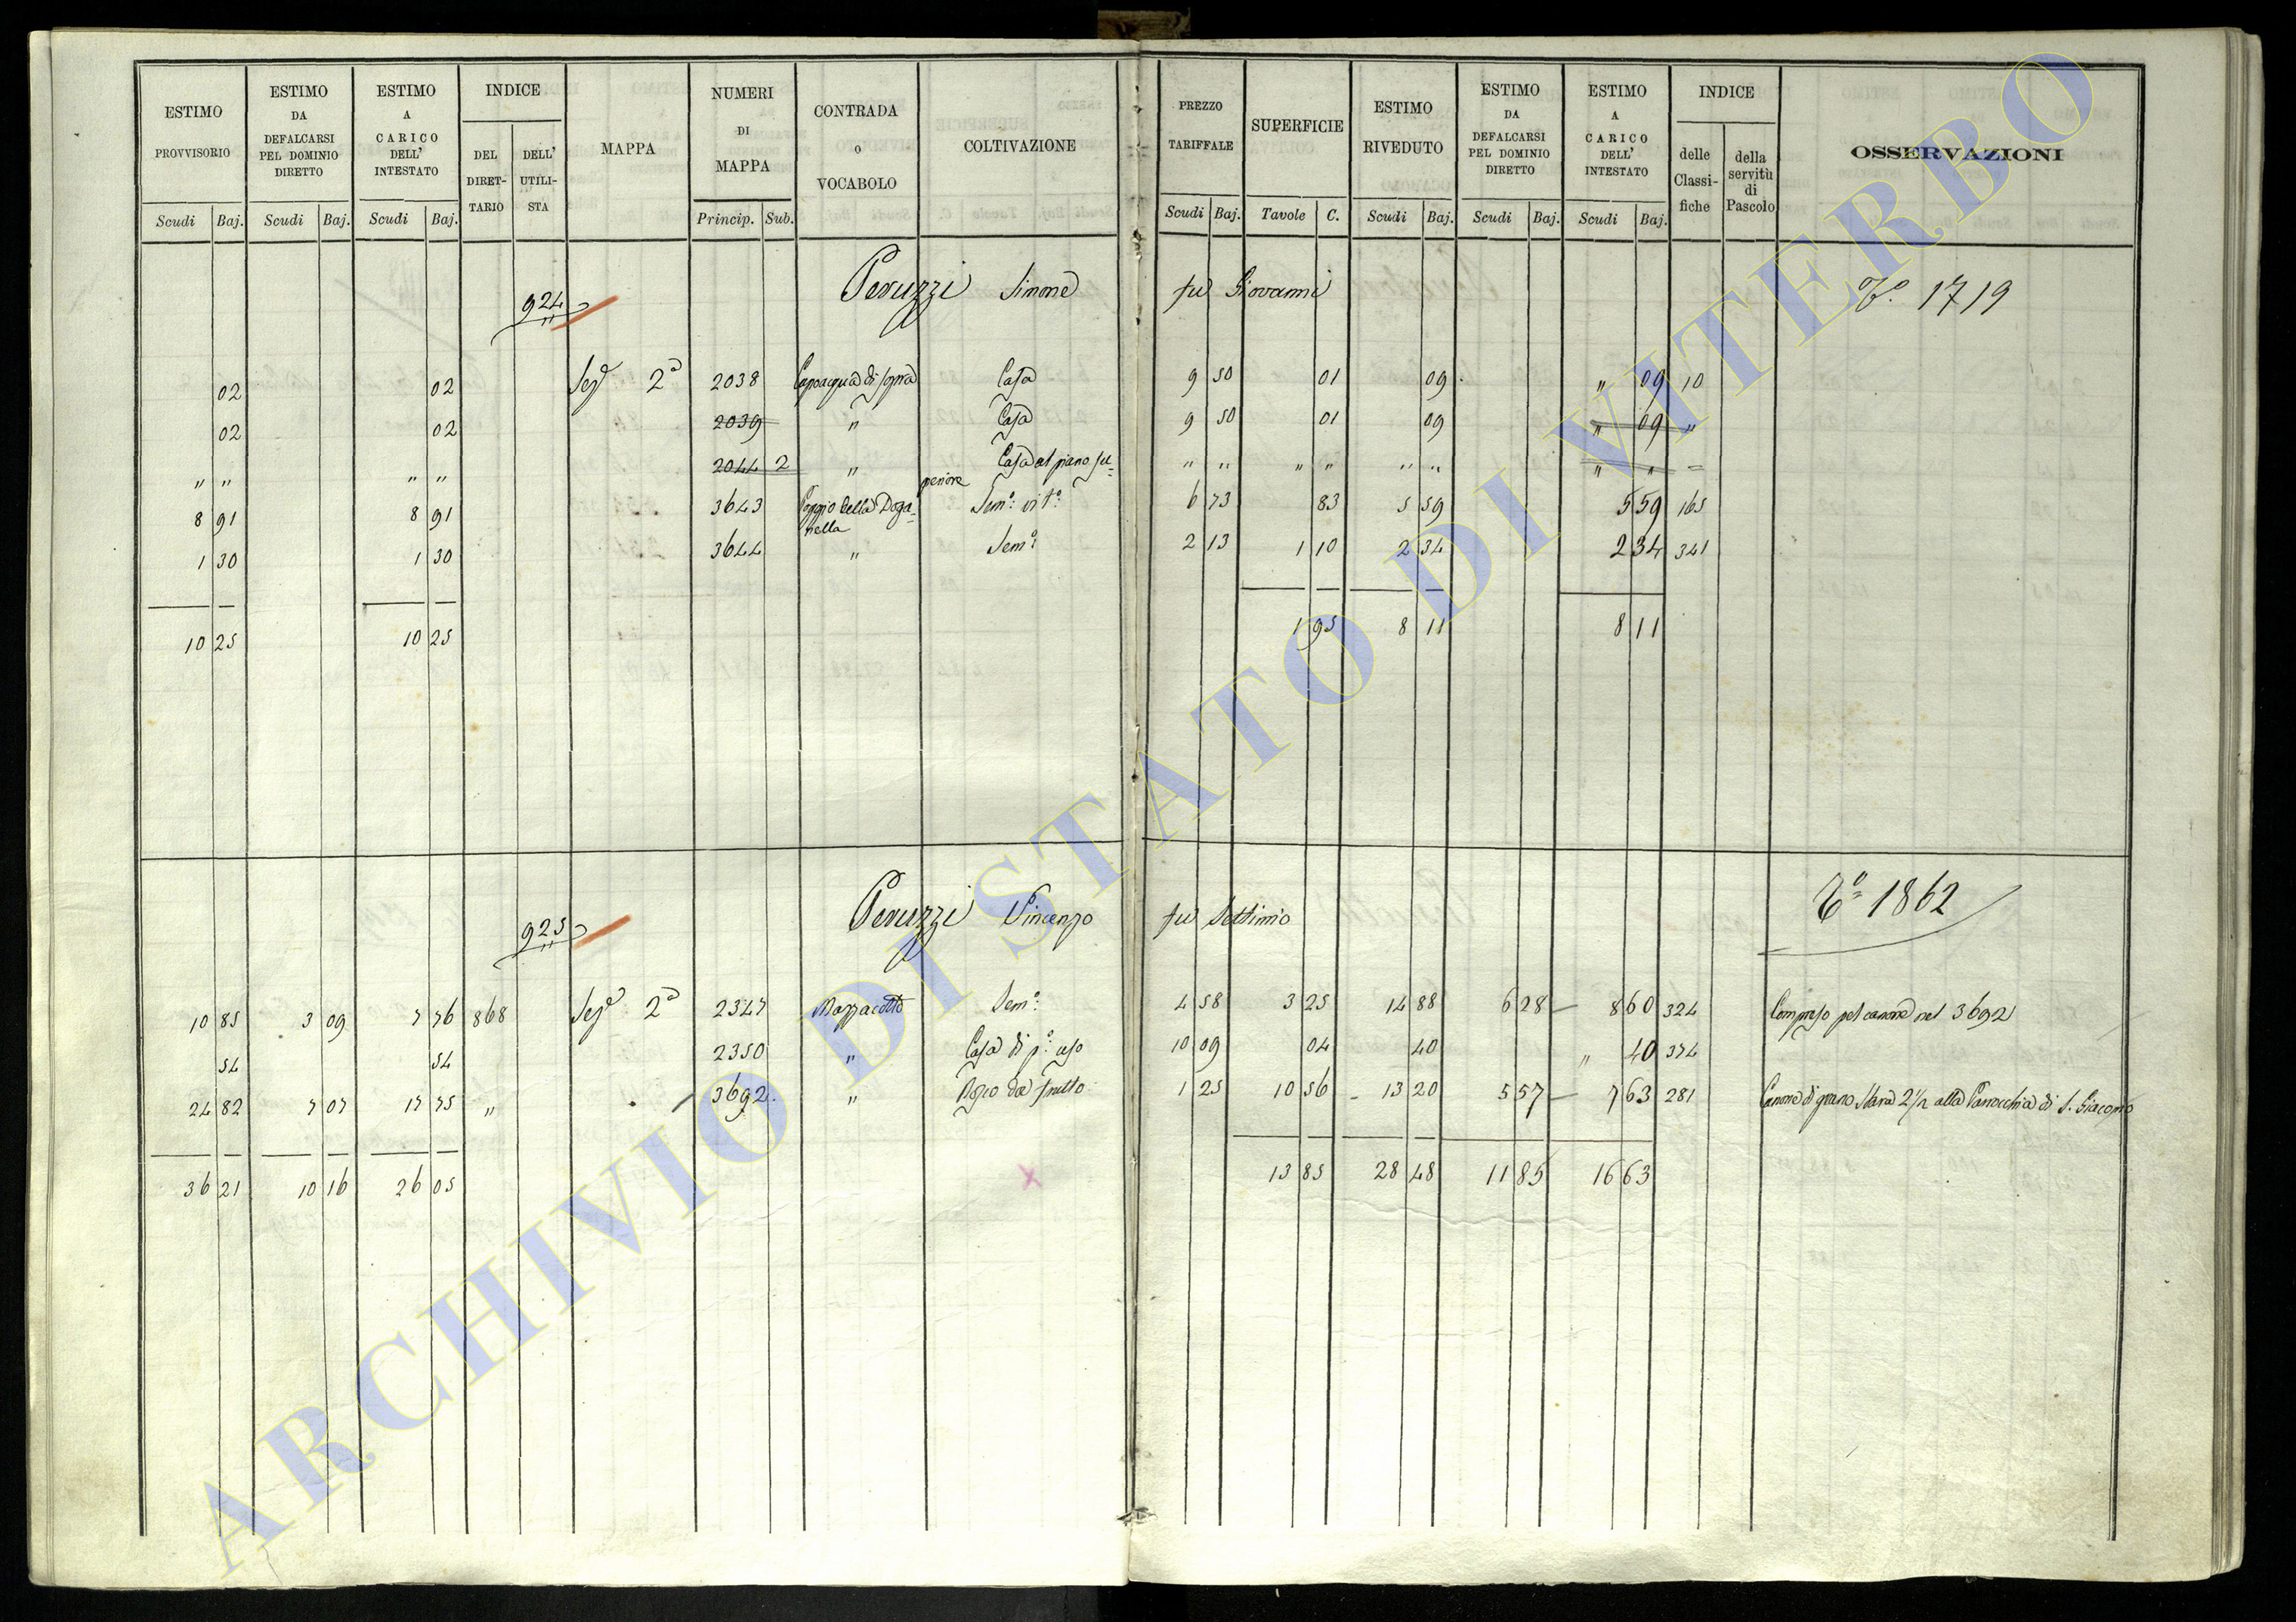 ESTIMO PROVVISORIO Scudi Baj.
ESTIMO DA DEFALCARSI PEL DOMINIO DIRETTO Scudi Baj.
ESTIMO A CARICO DELL' INTESTATO Scudi Baj.
INDICE DEL DIRET- TARIO DELL' UTILI- STA
MAPPA
NUMERI DI MAPPA Princip. Sub.
CONTRADA o VOCABOLO
COLTIVAZIONE
PREZZO TARIFFALE Scudi Baj.
SUPERFICIE Tavole C.
ESTIMO RIVEDUTO Scudi Baj.
ESTIMO DA DEFALCARSI PEL DOMINIO DIRETTO Scudi Baj.
ESTIMO A CARICO DELL' INTESTATO Scudi Baj.
INDICE delle Classi- fiche della servitù di Pascolo
OSSERVAZIONI
924 Peruzzi Simone fu Giovanni 1719
02 02 Sez.e 2a 2038 Capoacqua di sopra Casa 9 50 01 09 " 09 10
02 02 2039 " Casa 9 50 01 09 " 09 "
" " " " 2044 2 " Casa al piano su- " " " " " " " " =
periore
8 91 8 91 3643 Poggio della Doga- Sem.o vit.o 6 73 83 5 59 5 59 165
nella
1 30 1 30 3644 " Sem.o 2 13 1 10 2 34 2 34 341
10 25 10 25 1 95 8 11 8 11
925 Peruzzi Vincenzo fu Settimio 1862
10 85 3 09 7 76 868 Sez.e 2a 2347 Mazzacotto Sem.o 4 58 3 25 14 88 6 28 8 60 324 Compreso pel canone nel 3692
54 54 2350 " Casa di p.o uso 10 09 04 40 " 40 374
24 82 7 07 17 75 " 3692. " Bosco da frutto 1 25 10 56 13 20 5 57 7 63 281 Canone di grano Stara 2 1/2 alla Parrocchia di S. Giacomo
36 21 10 16 26 05 13 85 28 48 11 85 16 63
X
ARCHIVIO DI STATO DI VITERBO